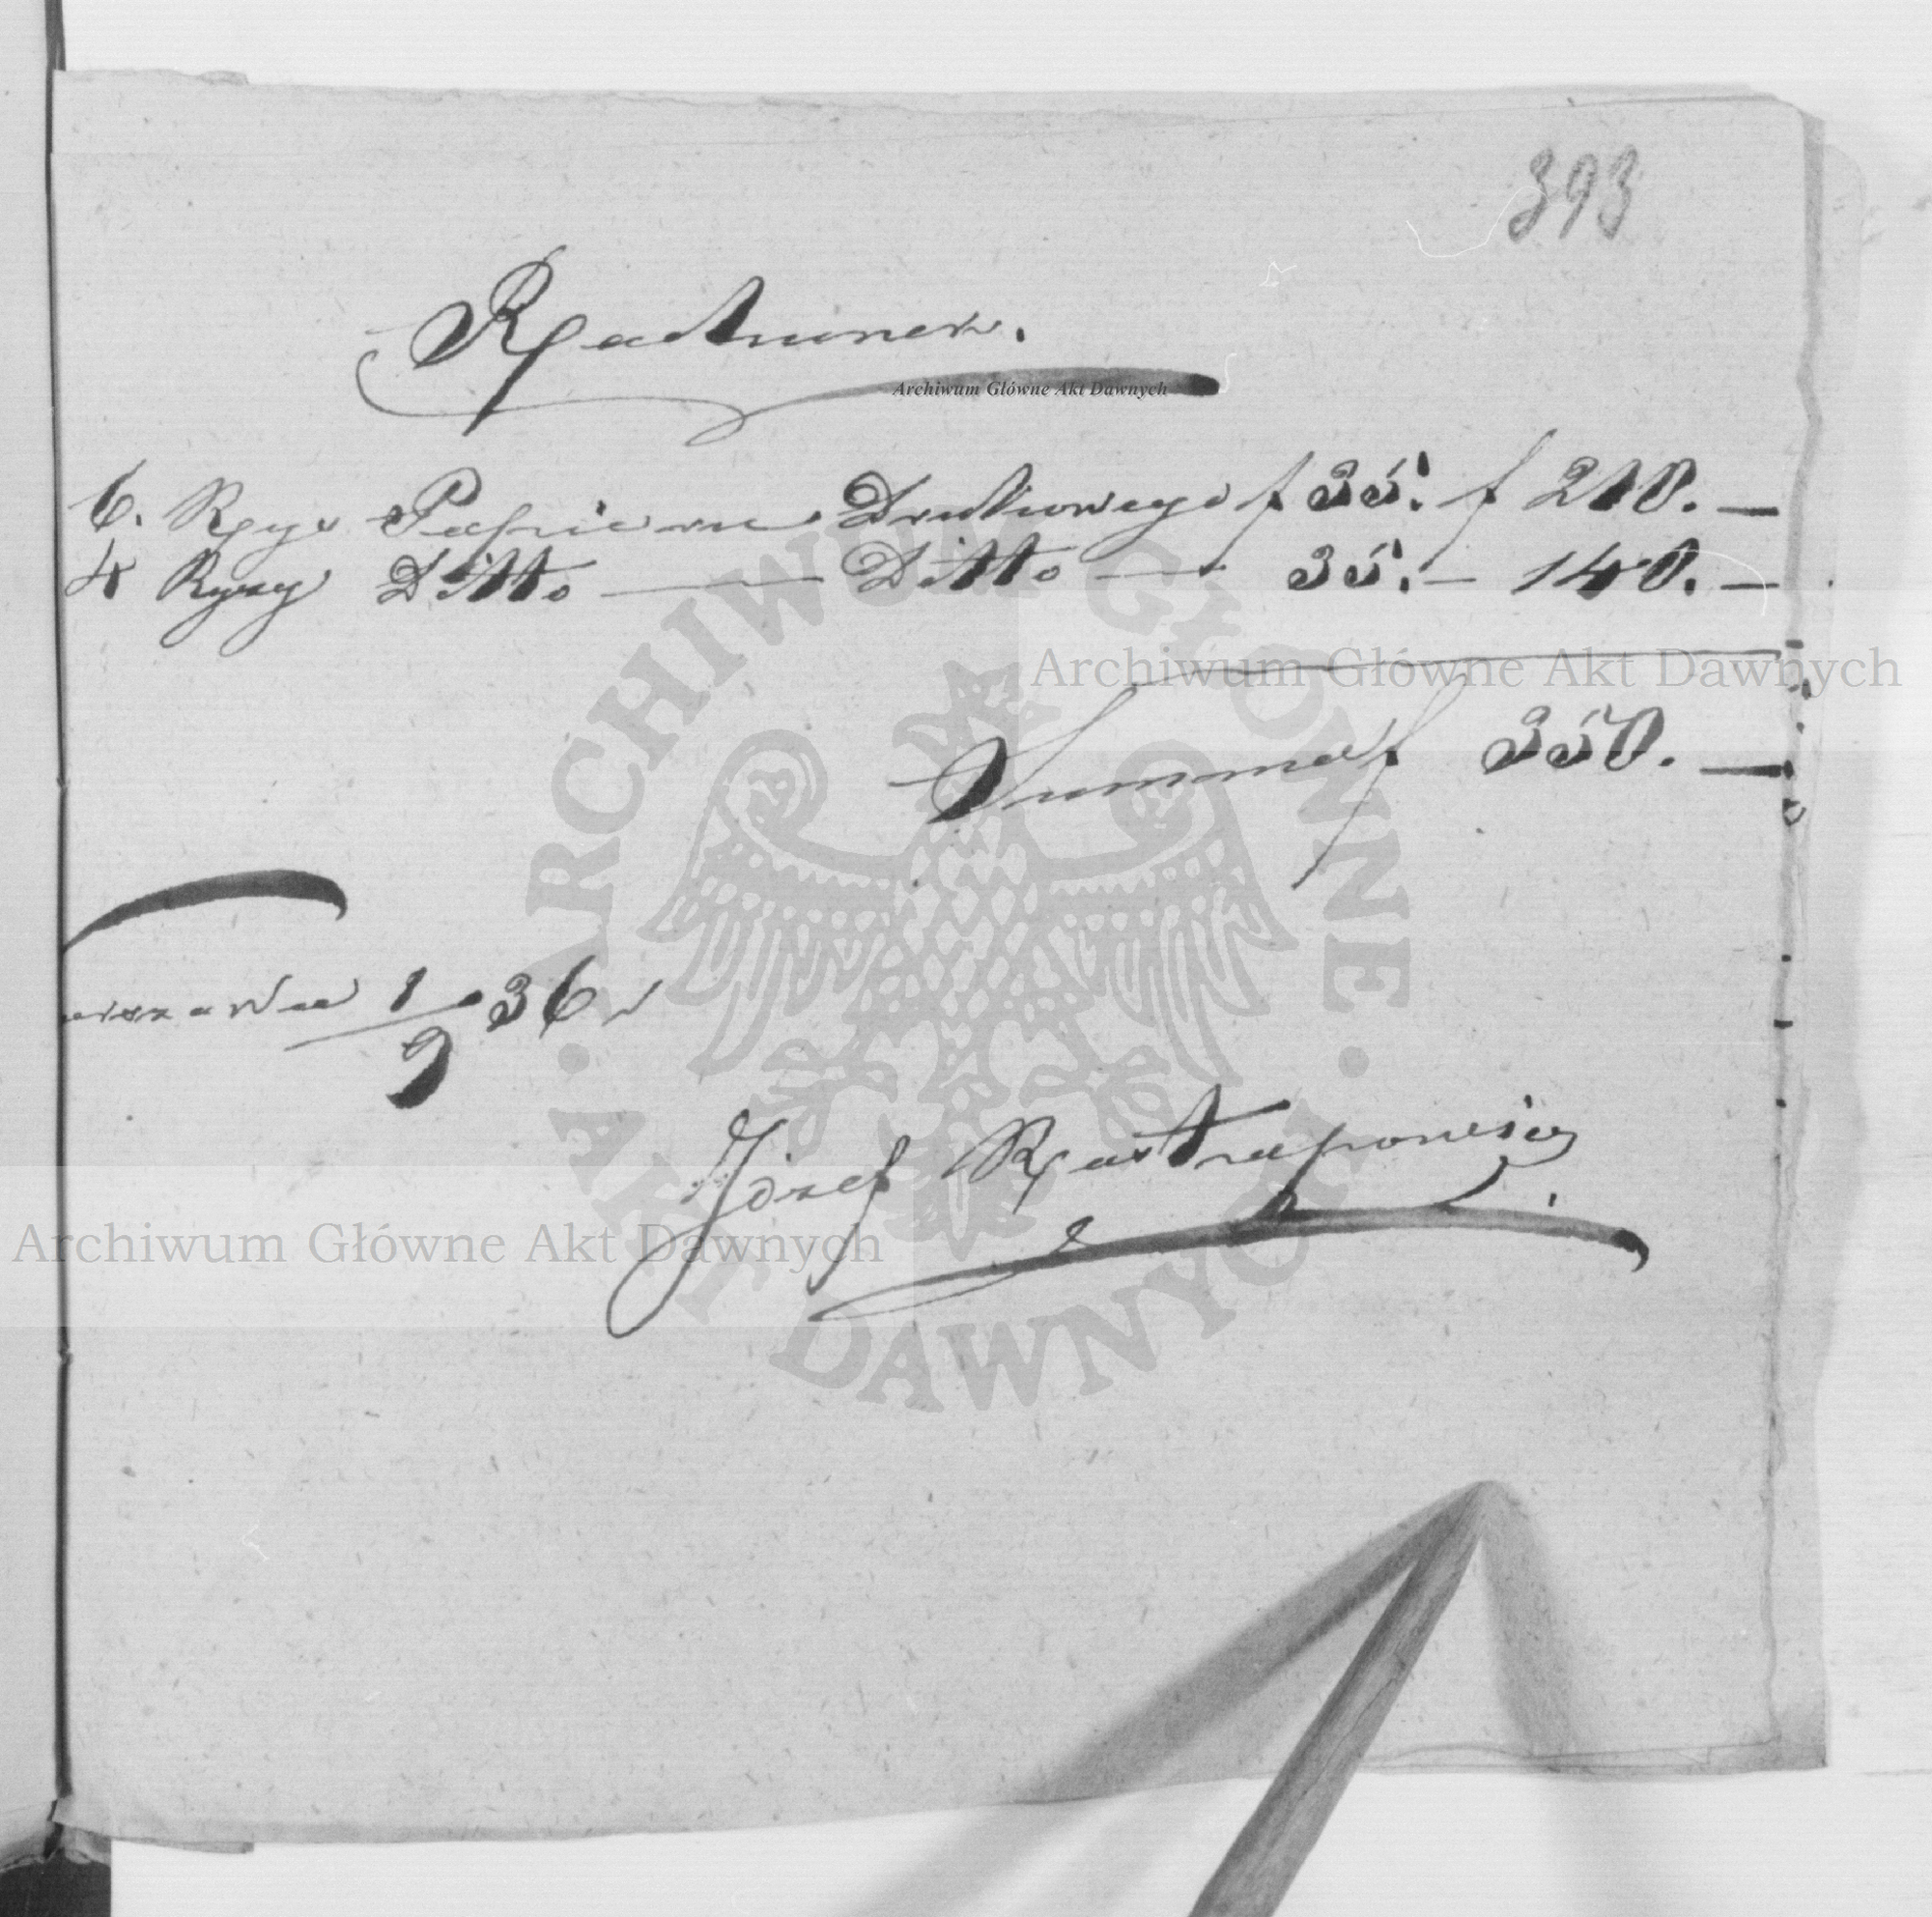 393
Rachunek.
Archiwum Główne Akt Dawnych
6. Ryz Papieru Drukowego f 35. f 210. —
4 Ryzy Ditto — Ditto — 35. — 140. —
Archiwum Główne Akt Dawnych
Summa f 350. —
arszawa 1/9 36 r
Józef
Archiwum Główne Akt Dawnych
ARCHIWUM GŁÓWNE · AKT DAWNYCH ·